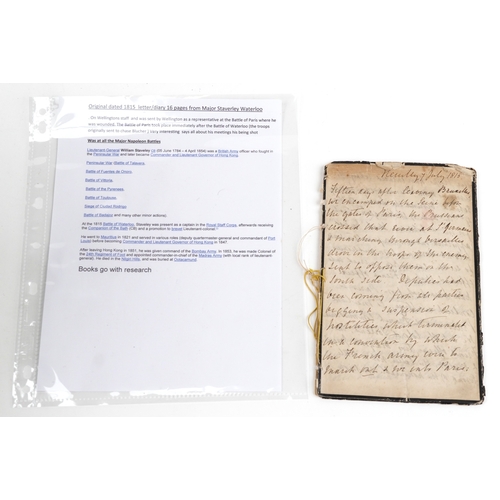 Original dated 1815 letter/diary 16 pages from Major Staverley Waterloo
On Wellingtons staff and was sent by Wellington as a representative at the Battle of Paris where he
was wounded. The battle of Paris took place immediately after the Battle of Waterloo (the troops
originally sent to chase interesting says all about his meetings his being shot
Was at all the Major Napoleon Battles
Lieutenant General William Staveley CB (29 June 1784 – 4 April 1854) was a British Army officer who fought in the
Peninsular War and later became Commander and Lieutenant Governor of Hong Kong
Peninsular War (Battle of Talavera,
Battle of Fuentes de Onoro,
Battle of Vitoria,
Battle of the Pyrenees,
Battle of Toulouse,
Siege of Ciudad Rodrigo
Battle of Badajoz and many other minor actions).
At the 1815 Battle of Waterloo, Staveley was present as a captain in the Royal Staff Corps, afterwards receiving
the Companion of the Bath (CB) and a promotion to brevet Lieutenant-colonel.
He went to Mauritius in 1821 and served in various roles (deputy quartermaster general and commandant of Port
Louis) before becoming Commander and Lieutenant Governor of Hong Kong in 1847.
After leaving Hong Kong in 1851, he was given command of the Bombay Army. In 1853, he was made Colonel of
the 94th Regiment of Foot and appointed commander-in-chief of the Madras Army (with local rank of lieutenant
general). He died in the Nilgiri Hills, and was buried at Ootacamund.
Books go with research
July 1815
Fifteen days after leaving Brussels
we encamped on the
the gates of Paris, the Prussians
crossed that river at St Germain
& marching through Versailles
drew in the troops of the enemy
sent to oppose them on the
South side
been coming from all parties
begging a suspension of
hostilities which terminated
in a convention by which
the French army were to
march out & we into Paris.